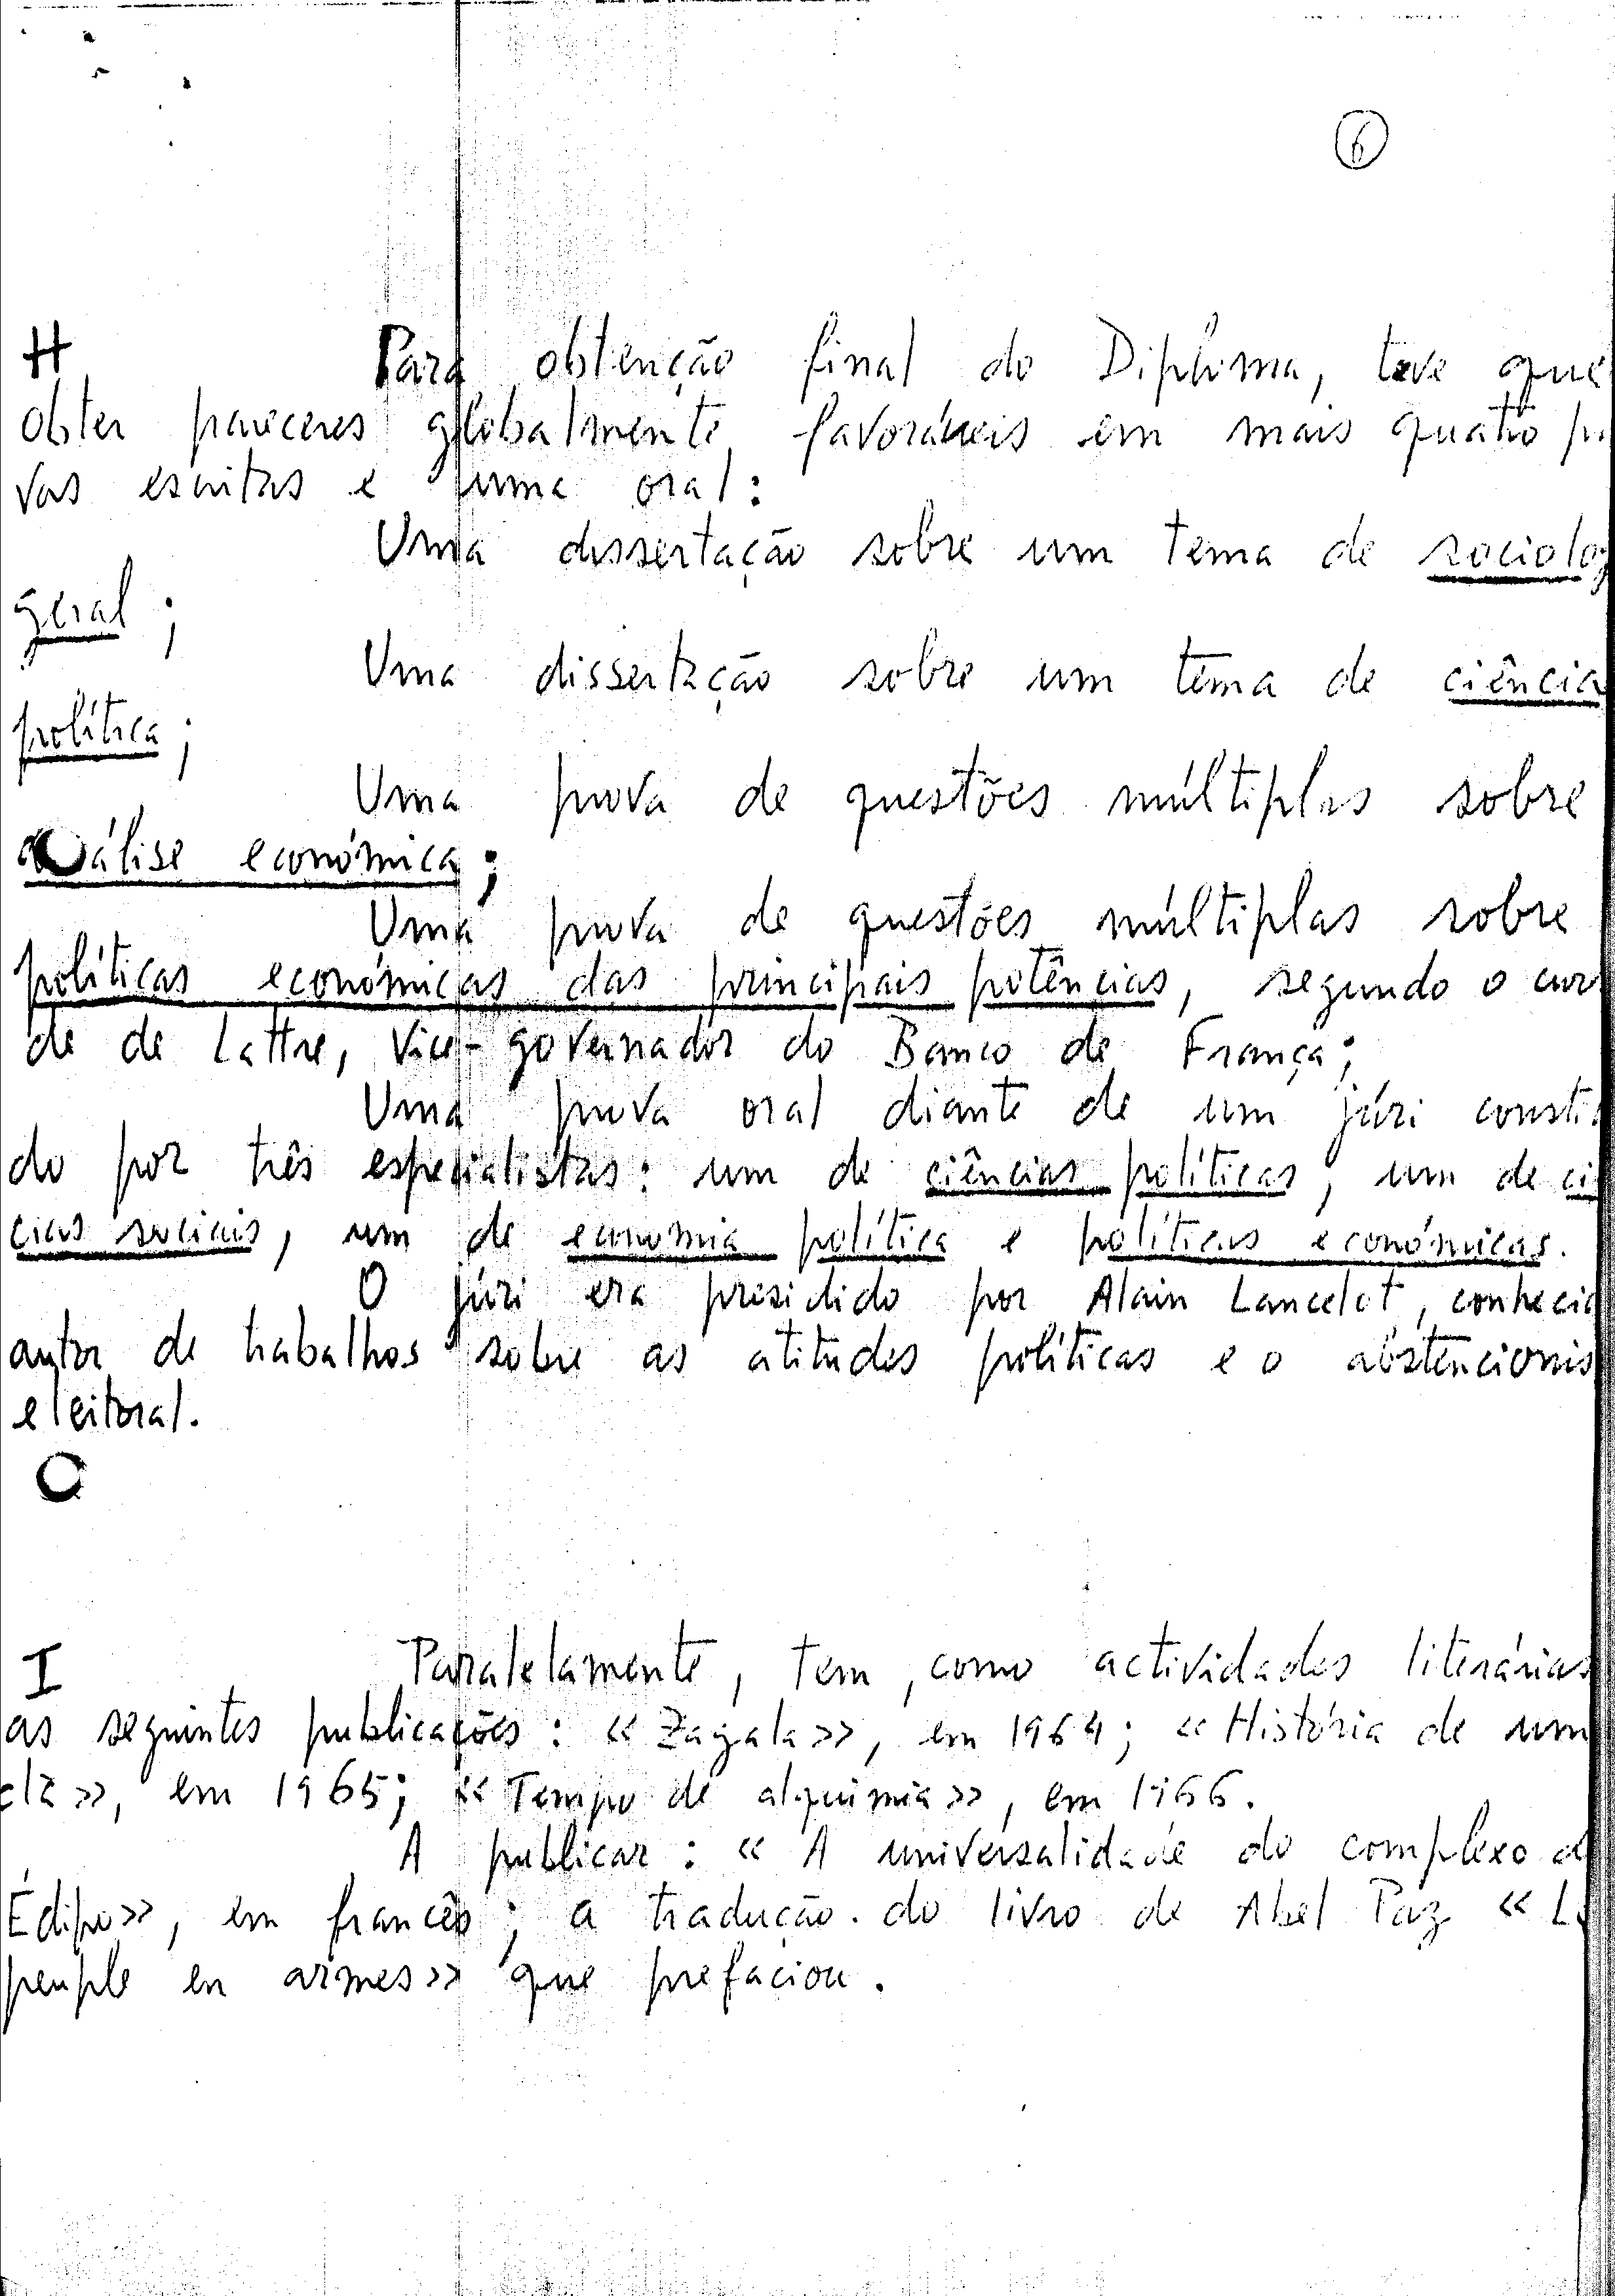 6
H Para obtenção final do Diploma, teve que
obter pareceres globalmente favoráveis em mais quatro
vas escritas e uma oral:
Uma dissertação sobre um tema de sociolog
geral;
Uma dissertação sobre um tema de ciência
política;
Uma prova de questões múltiplas sobre
análise económica;
Uma prova de questões múltiplas sobre
políticas económicas das principais potências, segundo o cur
de de Lattre, vice-governador do Banco de França;
Uma prova oral diante de um júri consti
do por três especialistas: um de ciências políticas, um de ci
cias sociais, um de economia política e políticas económicas.
O júri era presidido por Alain Lancelot, conheci
autor de trabalhos sobre as atitudes políticas e o abstencionis
eleitoral.
I Paralelamente, tem, como actividades literárias
as seguintes publicações: «Zagala», em 1964; «História de um
», em 1965; «Tempo de alquimia», em 1966.
A publicar: «A universalidade do complexo d
Édipo», em francês; a tradução do livro de Abel Paz «L
peuple en armes» que prefaciou.